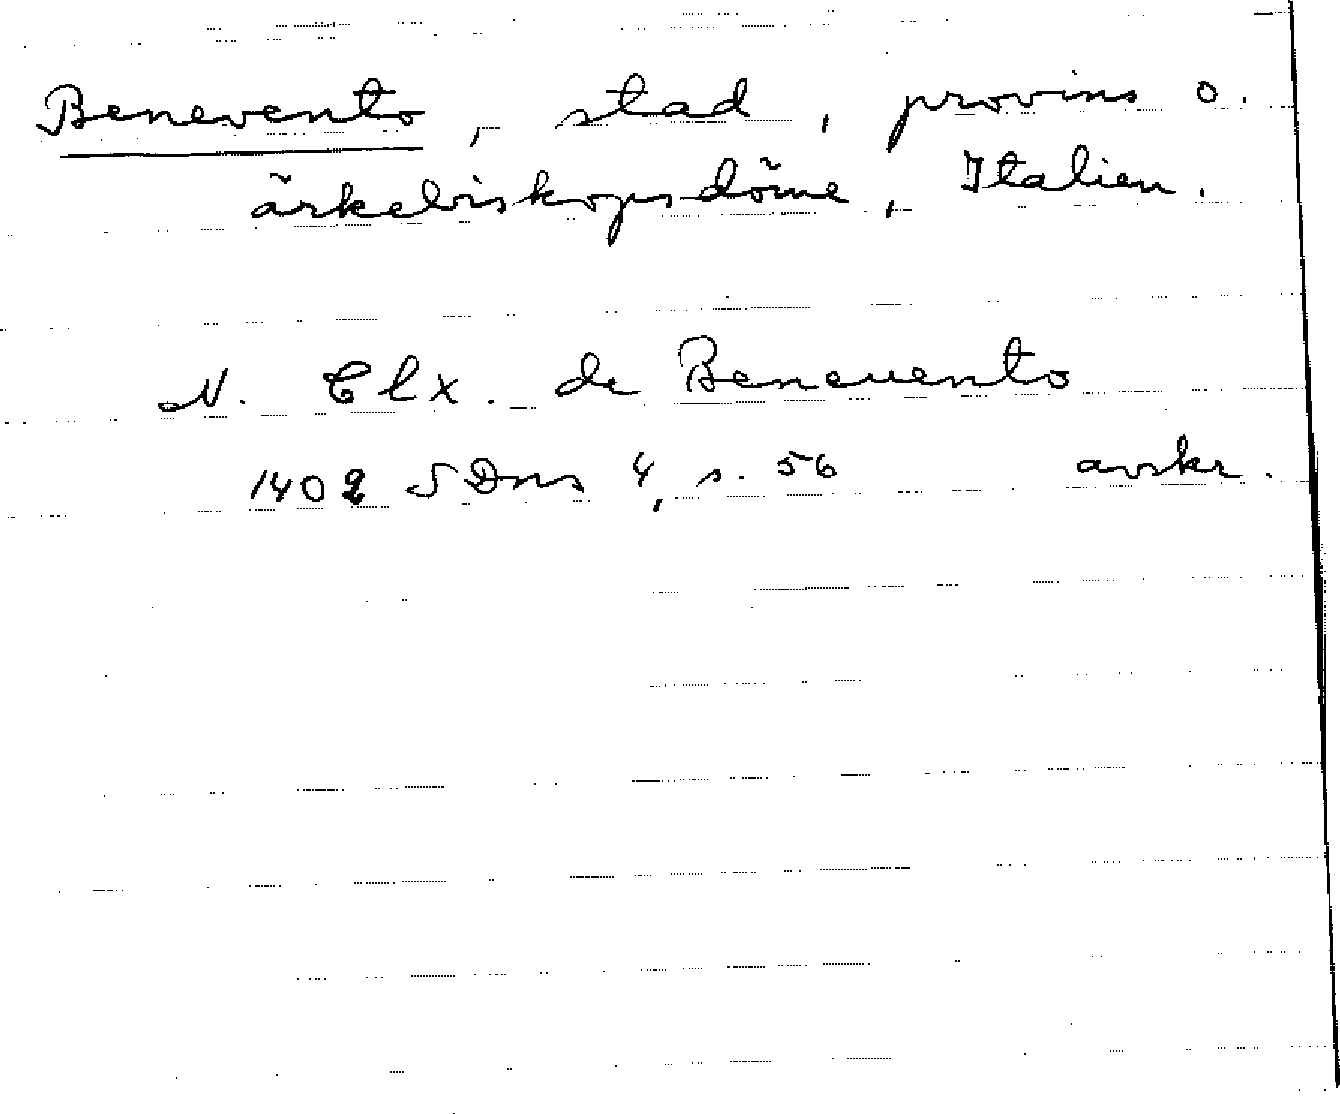 Benevento, stad, provins o.
ärkebiskopsdöme, Italien.
N. Clx. de Beneuento
1402 SDns 4, s. 56 avskr.